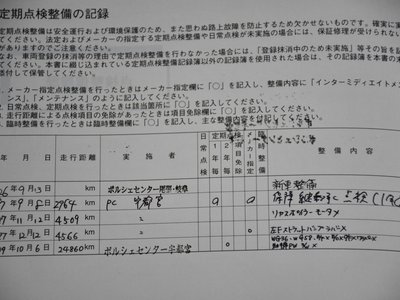 定期点検整備の記録
定期点検整備は安全運行および環境保護のため、また思わぬ路上故障を防止するため欠かせないものです。確実に実
法定点検およびメーカーの指定する定期点検や日常点検が未実施の場合には、保証修理が受けられない
がありますのでご注意ください。
なお、車両登録の抹消等の理由で定期点検整備を行わなかった場合には、「登録抹消中のため未実施」等その旨を記
ください。本書に綴じ込まれている定期点検整備記録簿以外の記録簿を使用された場合は、その記録簿を本書の末
添付して保管してください。
1. メーカー指定点検を行ったときはメーカー指定欄に「○」を記入し、整備内容に「インターミディエイトメ
ンス」、「メンテナンス」のように記入してください。
2. 日常点検、定期点検を行ったときは該当箇所に「○」を記入してください。
3. 走行距離による点検項目の免除があったときは項目免除欄に「○」を記入してください。
4. 臨時整備を行ったときは臨時整備欄に「○」を記入し、主な整備内容を付記してください。
年 月 日 走行距離 実施者 日常点検 定期点検 1年毎 2年毎 項目免除 メーカー指定 臨時整備 整備内容
06 9月13日 km ポルシェセンター 新車整備
07 9月8日 2764 km PC 宇都宮 点検
07 11月12日 4509 km 〃
07 12月12日 4566 km 〃
09 10月6日 24860 km ポルシェセンター宇都宮